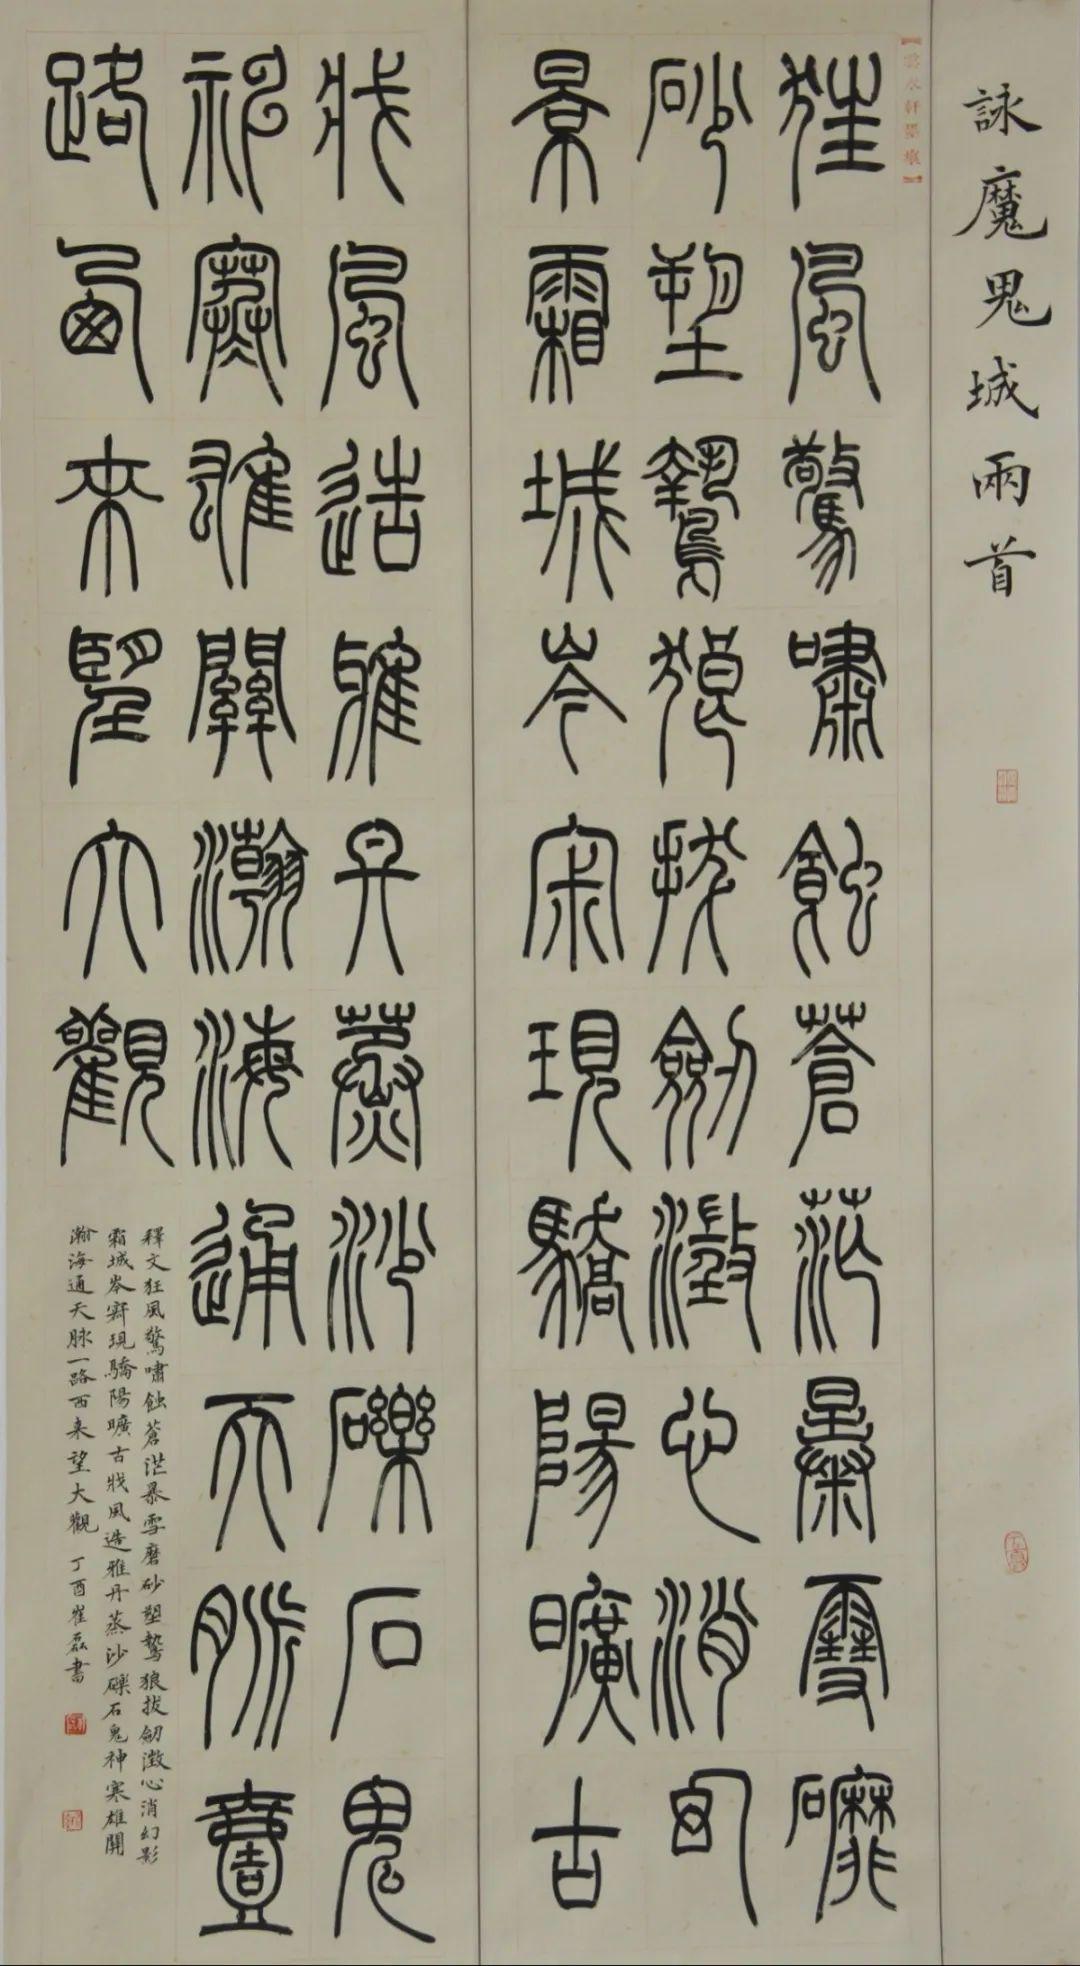 詠魔鬼城兩首
狂風驚嘯蝕蒼茫暴雪磨
砂塑鷙狼拔劒澂心消幻
景霜城岑寂現驕陽曠古
戕風造雅丹蒸沙礫石鬼
神寒雄關瀚海通天脈壹
路西來望大觀
釋文狂風驚嘯蝕蒼茫暴雪磨砂塑鷙狼拔劒澂心消幻影
霜城岑寂現驕陽曠古戕風造雅丹蒸沙礫石鬼神寒雄關
瀚海通天脉一路西来望大觀 丁酉崔磊書